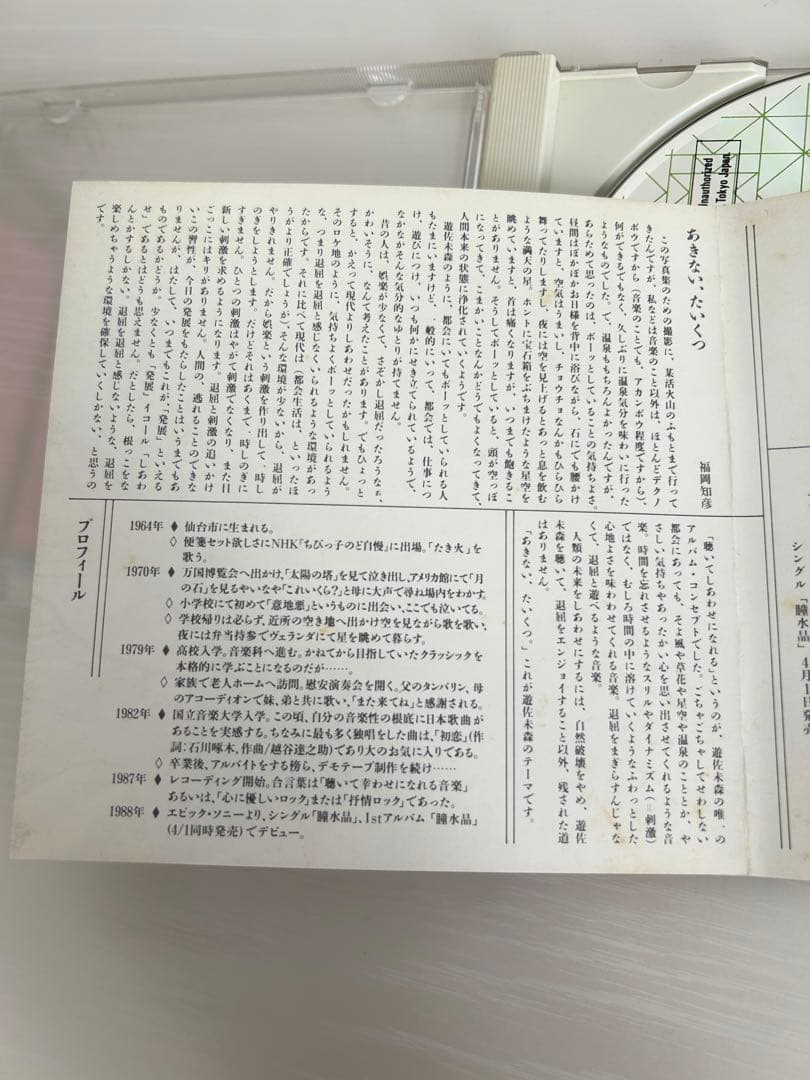 あきない、たいくつ
福岡知彦
この写真集のための撮影に、某活火山のふもとまで行って
きたんですが、私などは音楽のこと以外は、ほとんどデクノ
ボウですから(音楽のことでも、アカンボウ程度ですから)、
何ができるでもなく、久しぶりに温泉気分を味わいに行った
ようなものでした。で、温泉ももちろんよかったんですが、
あらためて思ったのは、ボーッとしていることの気持ちよさ。
昼間はぽかぽかお日様を背中に浴びながら、石にでも腰かけ
ていますと、空気はうまいし、チョウチョなんかもひらひら
舞ってたりしますし、夜には空を見上げるとあっと息を飲む
ような満天の星。ホントに宝石箱をぶちまけたような星空を
眺めていますと、首は痛くなりますが、いつまでも飽きるこ
とがありません。そうしてボーッとしていると、頭が空っぽ
になってきて、こまかいことなんかどうでもよくなってきて、
人間本来の状態に浄化されていくようです。
遊佐未森のように、都会にいてもボーッとしていられる人
もたまにいますけど、一般的にいって、都会では、仕事につ
け、遊びにつけ、いつも何かにせき立てられているようで、
なかなかそんな気分的なゆとりが持てません。
昔の人は、娯楽が少なくて、さぞかし退屈だったろうなぁ、
かわいそうに、なんて考えたことがあります。でもひょっと
すると、かえって現代よりしあわせだったかもしれません。
そのロケ地のように、気持ちよくボーッとしていられるよう
な、つまり退屈を退屈と感じなくいられるような環境があっ
たからです。それに比べて現代は(都会生活は、といったほ
うがより正確でしょうが)、そんな環境が少ないから、退屈が
やりきれません。だから娯楽という刺激を作り出して、時し
のぎをしようとします。だけどそれはあくまで、時しのぎに
すぎません。ひとつの刺激はやがて刺激でなくなり、また日
新しい刺激を求めるようになります。退屈と刺激の追いかけ
ごっこにはキリがありません。人間の、逃れることのできな
いこの習性が、今日の発展をもたらしたことはいうまでもあ
りませんが、はたして、いつまでもこれが「発展」といえる
ものであるかどうか。少なくとも「発展」イコール「しあわ
せ」であるとはどうも思えません。だとしたら、根っこをな
んとかするしかない。退屈を退屈と感じないような、退屈を
楽しめちゃうような環境を確保していくしかない、と思うの
です。
「聴いてしあわせになれる」というのが、遊佐未森の唯一の
アルバム・コンセプトでした。ごちゃごちゃしてせわしない
都会にあっても、そよ風や草花や星空や温泉のこととか、や
さしい気持ちやあったかい心を思い出させてくれるような音
楽。時間を忘れさせるようなスリルやダイナミズム(=刺激)
ではなく、むしろ時間の中に溶けていくようなふわっとした
心地よさを味わわせてくれる音楽。退屈をまぎらすんじゃな
くて、退屈と遊べるような音楽。
人類の未来をしあわせにするには、自然破壊をやめ、遊佐
未森を聴いて、退屈をエンジョイすること以外、残された道
はありません。
「あきない、たいくつ。」これが遊佐未森のテーマです。
プロフィール
1964年 ◆ 仙台市に生まれる。
◇ 便箋セット欲しさにNHK「ちびっ子のど自慢」に出場。「たき火」を
歌う。
1970年 ◆ 万国博覧会へ出かけ、「太陽の塔」を見て泣き出し、アメリカ館にて「月
の石」を見るやいなや「これいくら?」と母に大声で尋ね場内をわかす。
◇ 小学校にて初めて「意地悪」というものに出会い、ここでも泣いてる。
◇ 学校帰りは必らず、近所の空き地へ出かけ空を見ながら歌を歌い、
夜には弁当持参でヴェランダにて星を眺めて暮らす。
1979年 ◆ 高校入学。音楽科へ進む。かねてから目指していたクラッシックを
本格的に学ぶことになるのだが……。
◇ 家族で老人ホームへ訪問。慰安演奏会を開く。父のタンバリン、母
のアコーディオンで妹、弟と共に歌い、「また来てね」と感謝される。
1982年 ◆ 国立音楽大学入学。この頃、自分の音楽性の根底に日本歌曲が
あることを実感する。ちなみに最も多く独唱をした曲は、「初恋」(作
詞:石川啄木、作曲/越谷達之助)であり大のお気に入りである。
◇ 卒業後、アルバイトをする傍ら、デモテープ制作を続け……
1987年 ◆ レコーディング開始。合言葉は「聴いて幸わせになれる音楽」
あるいは、「心に優しいロック」または「抒情ロック」であった。
1988年 ◆ エピック・ソニーより、シングル「瞳水晶」、1stアルバム「瞳水晶」
(4/1同時発売)でデビュー。
シングル「瞳水晶」4月1日発売
Unauthorized
Tokyo Japan.